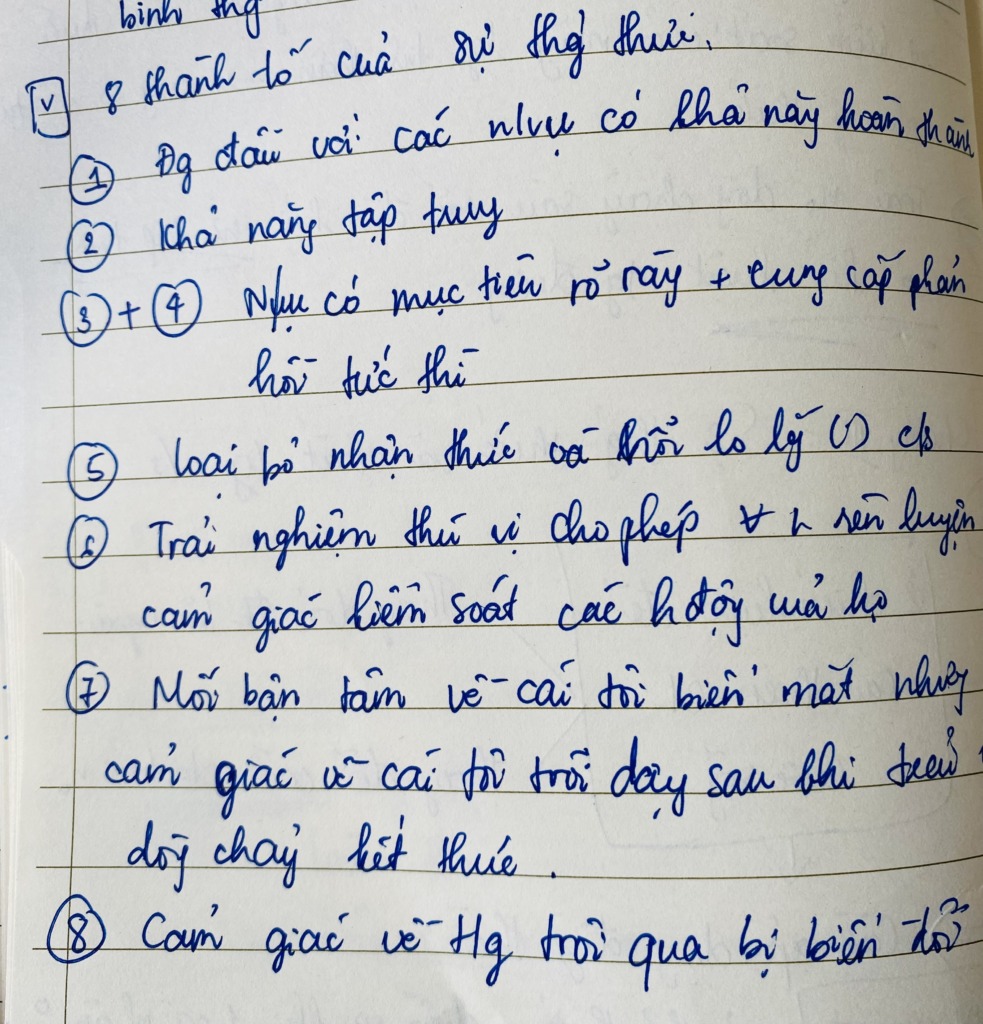 bình thg
V 8 thành tố của sự thg thức.
① Đg đầu với các n/vụ có khả năng hoàn thành
② Khả năng tập trung
③+④ N/vụ có mục tiêu rõ ràng + cung cấp phản
hồi tức thì
⑤ Loại bỏ nhận thức và khỏi lo lắng (,) c/s
⑥ Trải nghiệm thú vị cho phép rèn luyện
cảm giác kiểm soát các hđộng của họ
⑦ Mối bận tâm về cái tôi biến mất nhưng
cảm giác về cái tôi trỗi dậy sau khi
dòng chảy kết thúc.
⑧ Cảm giác về tg trôi qua bị biến đổi